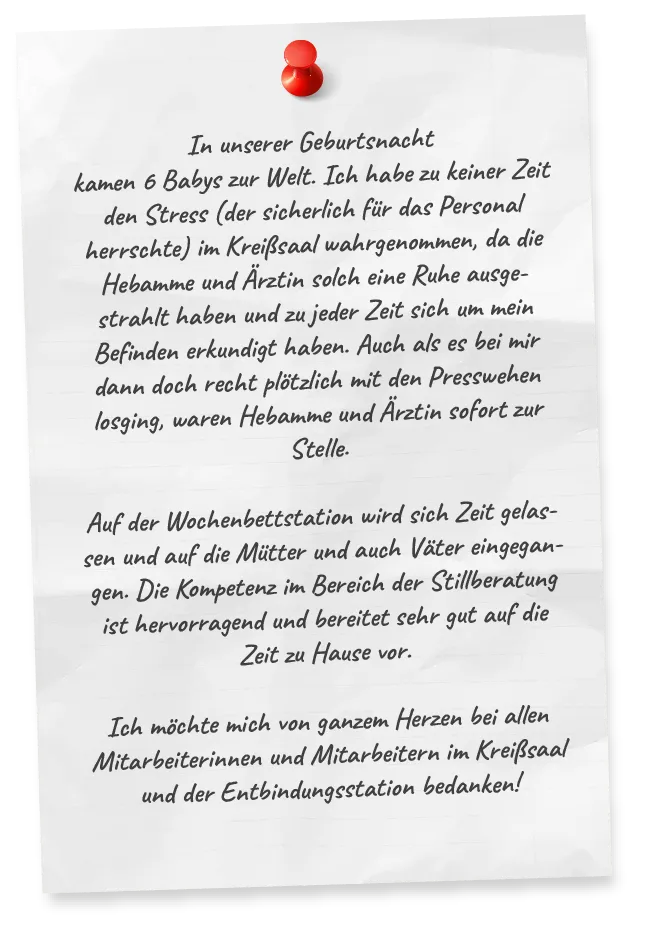 In unserer Geburtsnacht
kamen 6 Babys zur Welt. Ich habe zu keiner Zeit
den Stress (der sicherlich für das Personal
herrschte) im Kreißsaal wahrgenommen, da die
Hebamme und Ärztin solch eine Ruhe ausge-
strahlt haben und zu jeder Zeit sich um mein
Befinden erkundigt haben. Auch als es bei mir
dann doch recht plötzlich mit den Presswehen
losging, waren Hebamme und Ärztin sofort zur
Stelle.
Auf der Wochenbettstation wird sich Zeit gelas-
sen und auf die Mütter und auch Väter eingegan-
gen. Die Kompetenz im Bereich der Stillberatung
ist hervorragend und bereitet sehr gut auf die
Zeit zu Hause vor.
Ich möchte mich von ganzem Herzen bei allen
Mitarbeiterinnen und Mitarbeitern im Kreißsaal
und der Entbindungsstation bedanken!